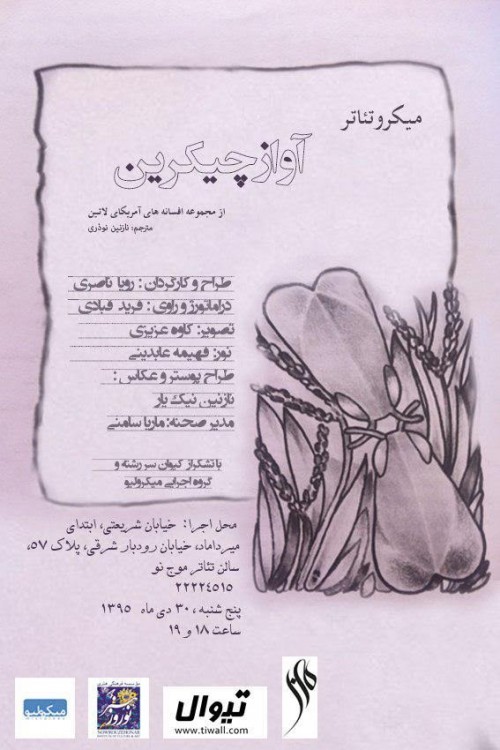 میکروتئاتر
آواز چیکرین
از مجموعه افسانه های آمریکای لاتین
مترجم: نازنین نوذری
طراح و کارگردان : رویا ناصری
دراماتورژ و راوی : فرید قبادی
تصویر: کاوه عزیزی
نور: فهیمه عابدینی
طراح پوستر و عکاس :
نازنین نیک یار
مدیر صحنه: ماریا سامنی
با تشکر از کیوان سررشته و
گروه اجرایی میکرولیو
محل اجرا: خیابان شریعتی، ابتدای
میرداماد، خیابان رودبار شرقی، پلاک ۵۷،
سالن تئاتر موج نو
۲۲۲۲۴۵۱۵
پنج شنبه، ۳۰ دی ماه ۱۳۹۵
ساعت ۱۸ و ۱۹
میکرولیو
موسسه فرهنگی هنری
نوروز هنر
NOWROUZEHONAR
تیوال
www.tiwall.com